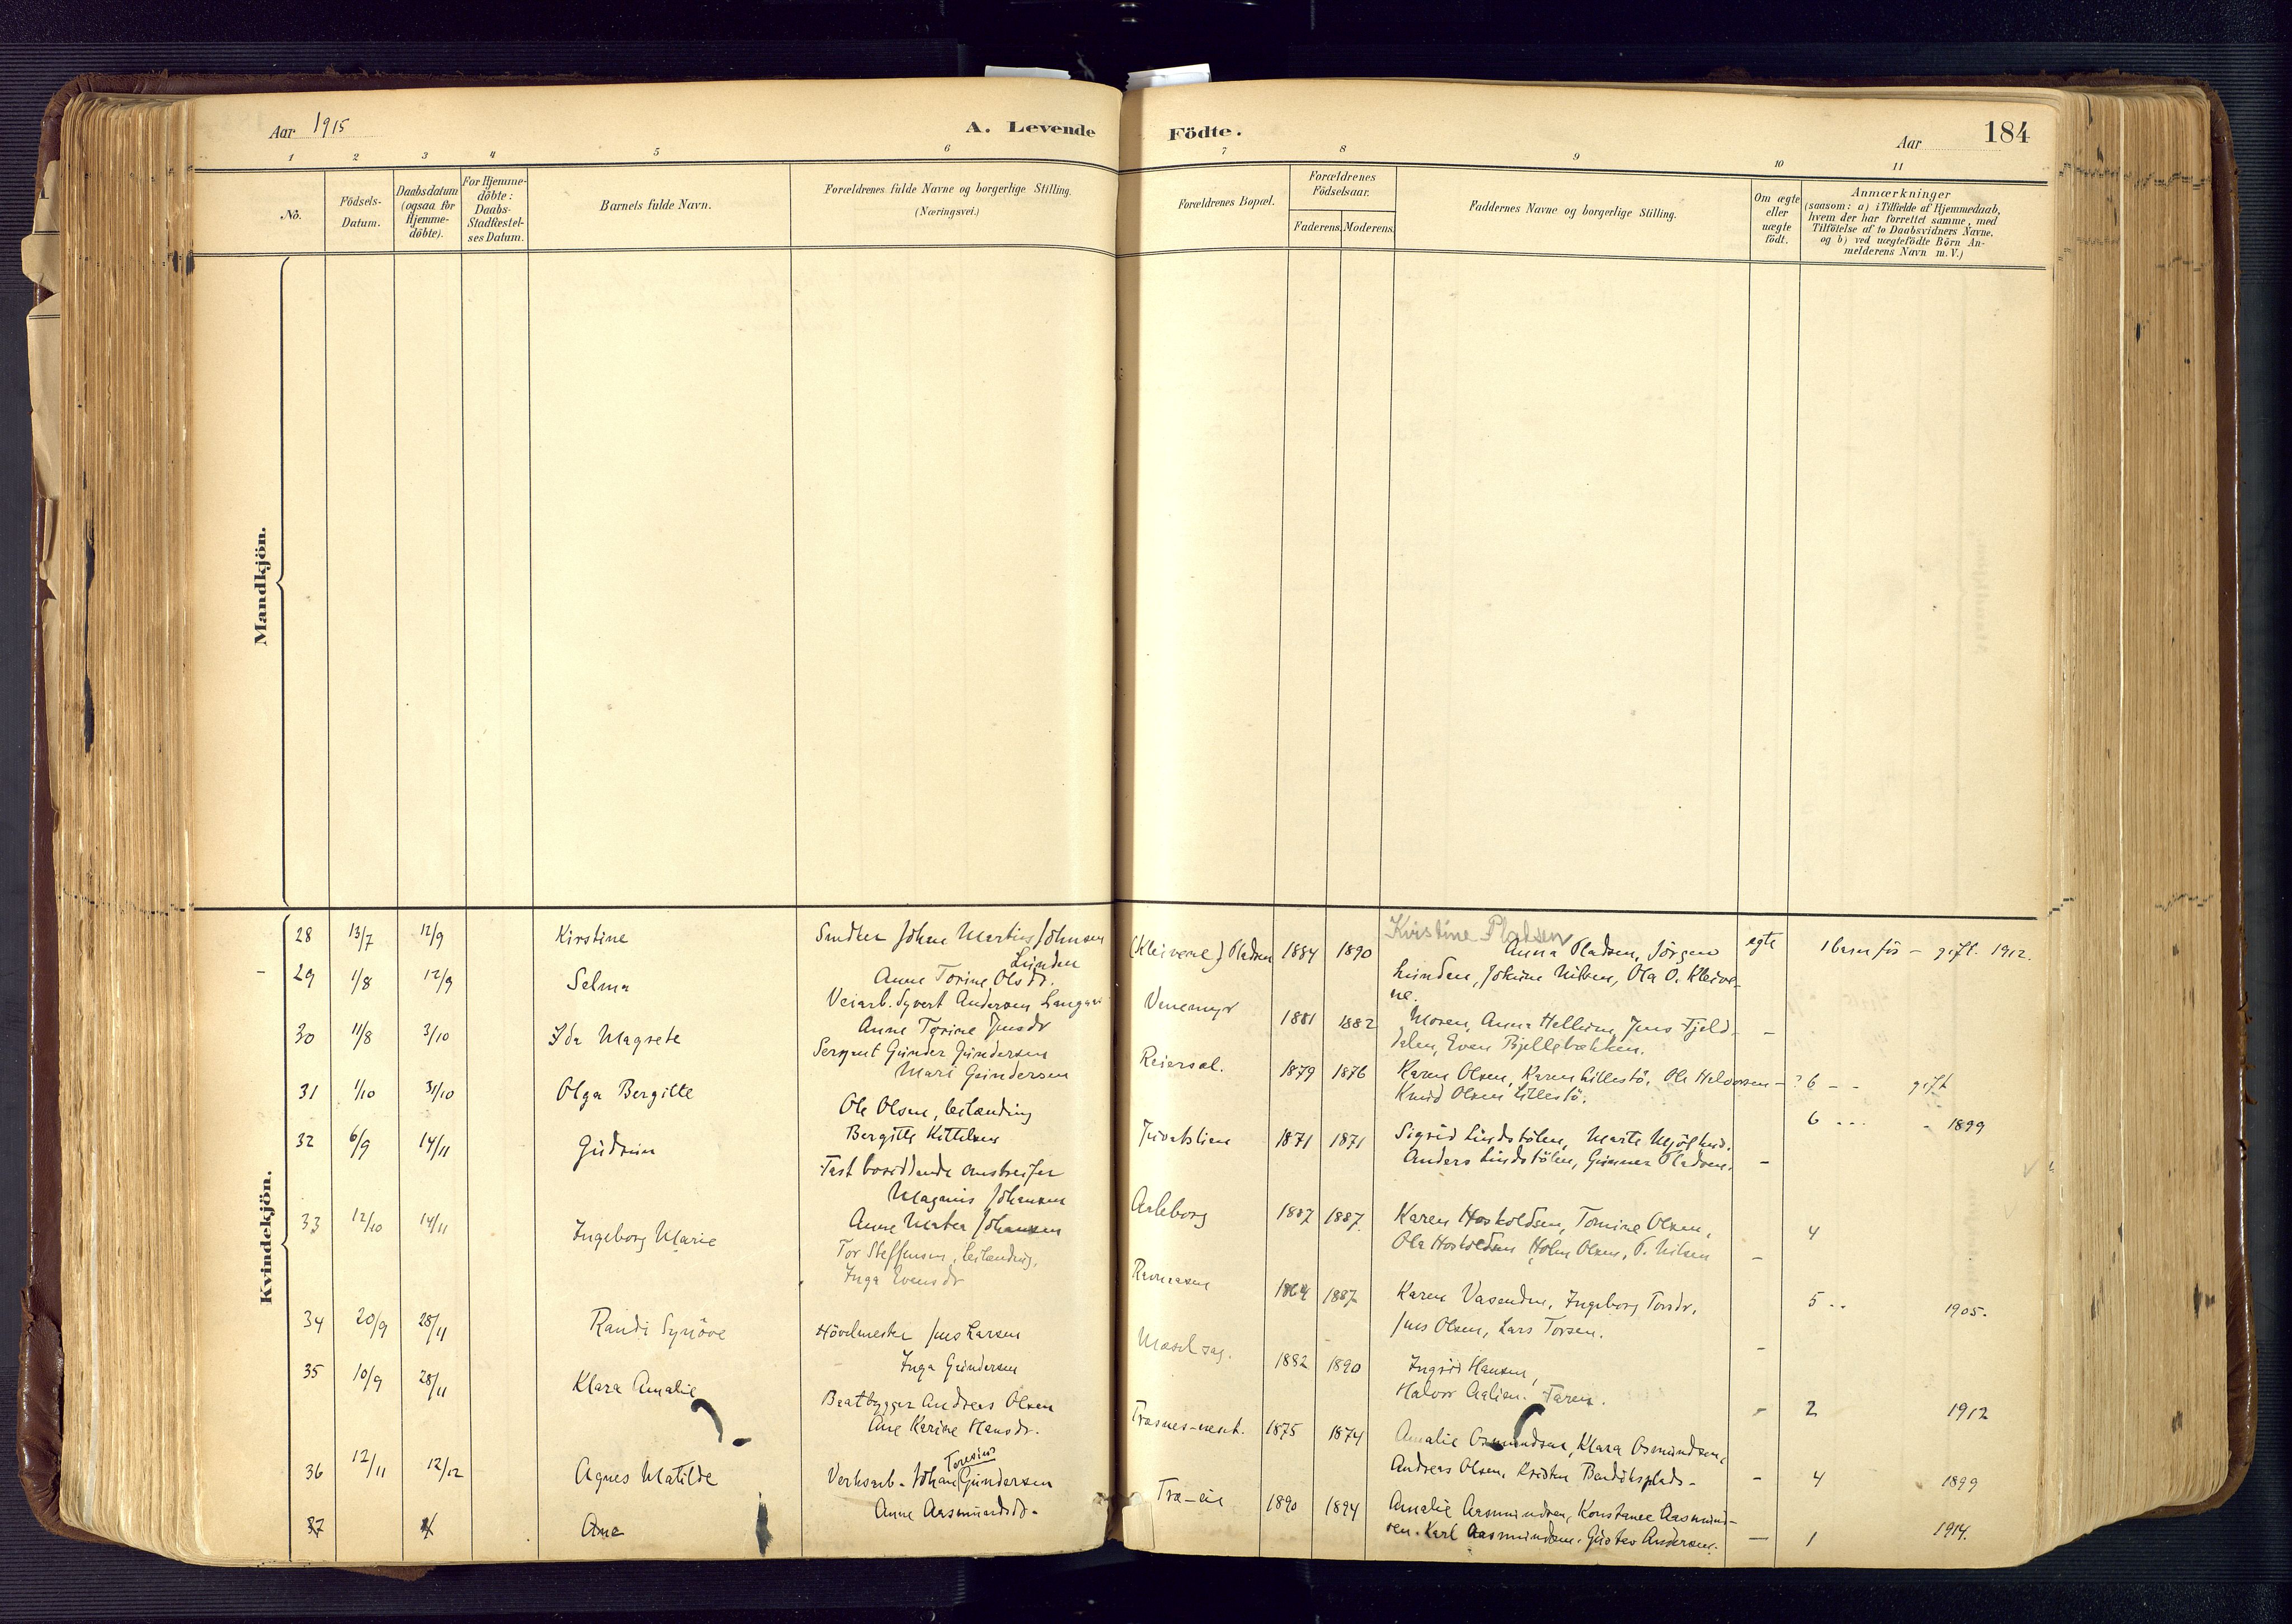 Aar 1915
A. Levende
Födte.
Aar
184
1 2 3 4 5 6 7 8 9 10 11
No.
Födsels-Datum.
Daabsdatum (ogsaa for Hjemme-döbte).
For Hjemme-döbte: Daabs-Stadfæstel-ses Datum.
Barnets fulde Navn.
Forældrenes fulde Navne og borgerlige Stilling. (Næringsvei.)
Forældrenes Bopæl.
Forældrenes Födselsaar.
Faderens. Moderens.
Faddernes Navne og borgerlige Stilling.
Om ægte eller uægte födt.
Anmærkninger
(saasom: a) i Tilfælde af Hjemmedaab,
hvem der har forrettet samme, med
Tilföielse af to Daabsvidners Navne,
og b) ved uægtefödte Börn An-
melderens Navn m.V.)
Mandkjön.
Kvindekjön.
28 13/7 12/9 Kirstine
Johan Martin Johnsen
Lunden
Anne Torine Olsdr.
(Kleivene) Pladsen 1884 1890
Kristine Pladsen
Anna Pladsen, Jörgen
Lunden, Johine Nilsen, Ola O. Kleive-
ne.
egte 1 barn för - gift. 1912.
29 1/8 12/9 Selma
Veiarb. Syvert Andersen
Anne Torine Jensdr
Venemyr 1881 1882
Moren, Anna Helleim, Jens Fjeld-
dalen, Even Bjellebækken.
-
30 11/8 3/10 Ida Magrete
Sergeant Gunder Gundersen
Mari Gundersen
Reiersøl. 1879 1876
Karen Olsen, Karen Lillestö, Ole Halvorsen
Knud Olsen Lillestö.
- ? 6 - - gift
31 1/10 31/10 Olga Bergitte
Ole Olsen,
Bergitte Kittilsen
1871 1871
Sigrid Lindstölen, Marte
Anders Lindstölen, Gunner Pladsen.
- 6 - 1899
32 6/9 14/11 Gudrun
Fast omstreifer
Magnus Johansen
Anne Martea Johansen
1887 1887
Karen Hoskoldsen, Tomine Olsen,
Ola Hoskoldsen, Holm Olsen, O. Nilsen
- 4
33 12/10 14/11 Ingeborg Marie
Tor Steffensen,
Inga Evensdr
1864 1887
Karen Vasenden, Ingeborg Torsdr,
Jens Olsen, Lars Torsen.
- 5 1905.
34 20/9 28/11 Randi Synöve
Hövelmester Jens Larsen
Inga Gundersen
1882 1890
Ingrid Hansen,
Halvor Aalien. Faren.
- 2 1912
35 10/9 28/11 Klara Amalie
Baatbygger Andreas Olsen
Ane Karine Hansdr.
1875 1874
Amalie Osmundsen, Klara Osmundsen,
Andreas Olsen, Kristen Bendiksplads-
- 4 1899
36 12/11 12/12 Agnes Matilde
Verksarb. Johan Toresius Gundersen
Anne Aasmundsd.
Træ-eie 1890 1894
Amalie Aasmundsen, Konstance Aasmund-
sen. Karl Aasmundsen. Gustav Andersen.
- 1 1914.
37 Ane